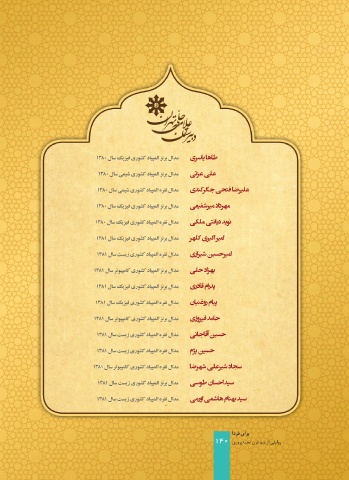 دبیرستان علامه حلی تهران
طاها یاسری مدال برنز المپیاد کشوری فیزیک سال ۱۳۸۰
علی عزتی مدال برنز المپیاد کشوری شیمی سال ۱۳۸۰
علیرضا فتحی جگرکندی مدال نقره المپیاد کشوری شیمی سال ۱۳۸۰
مهرداد میرشفیعی مدال برنز المپیاد کشوری فیزیک سال ۱۳۸۰
نوید دیانتی ملکی مدال نقره المپیاد کشوری فیزیک سال ۱۳۸۰
امیر اکبری کلهر مدال برنز المپیاد کشوری فیزیک سال ۱۳۸۱
امیرحسین شیرازی مدال نقره المپیاد کشوری زیست سال ۱۳۸۱
بهزاد حلی مدال برنز المپیاد کشوری کامپیوتر سال ۱۳۸۱
پدرام قادری مدال برنز المپیاد کشوری فیزیک سال ۱۳۸۱
پیام روغنیان مدال نقره المپیاد کشوری فیزیک سال ۱۳۸۱
حامد فیروزی مدال نقره المپیاد کشوری کامپیوتر سال ۱۳۸۱
حسین آقاجانی مدال نقره المپیاد کشوری زیست سال ۱۳۸۱
حسین پژم مدال نقره المپیاد کشوری زیست سال ۱۳۸۱
سجاد شیرعلی شهرضا مدال نقره المپیاد کشوری کامپیوتر سال ۱۳۸۰
سید احسان طوسی مدال برنز المپیاد کشوری زیست سال ۱۳۸۱
سید بهنام هاشمی اورمی مدال نقره المپیاد کشوری زیست سال ۱۳۸۱
برای فردا
۱۴۰ روایتی از نیم قرن نخبه پروری